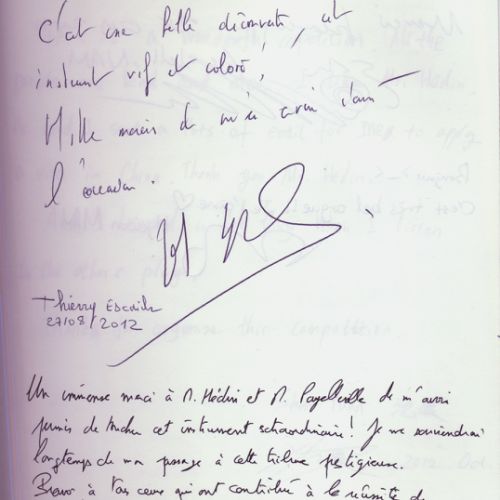 C'est une belle découverte, cet
instrument vif et coloré,
Mille mercis de m'en avoir donné
l'occasion.
Thierry Escaich
27/08/2012
Un immense merci à M. Hédin et M. Pagellville de m'avoir
permis de toucher cet instrument extraordinaire ! Je me souviendrai
longtemps de mon passage à cette tribune prestigieuse.
Bravo à tous ceux qui ont contribué à la réussite de